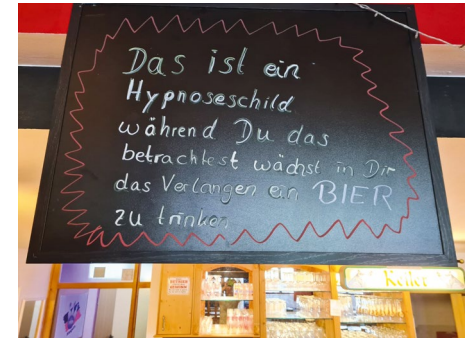 Das ist ein
Hypnoseschild
während Du das
betrachtest wächst in Dir
das Verlangen ein BIER
zu trinken
Keiler